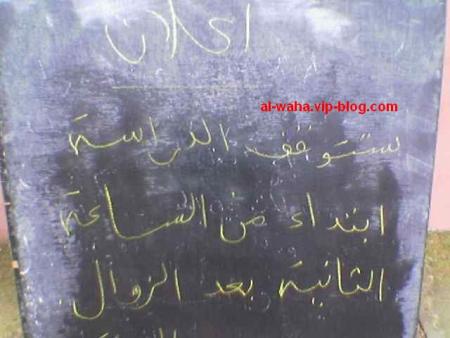 اعلان
al-waha.vip-blog.com
ستتوقف الدراسة
ابتداء من الساعة
الثانية بعد الزوال